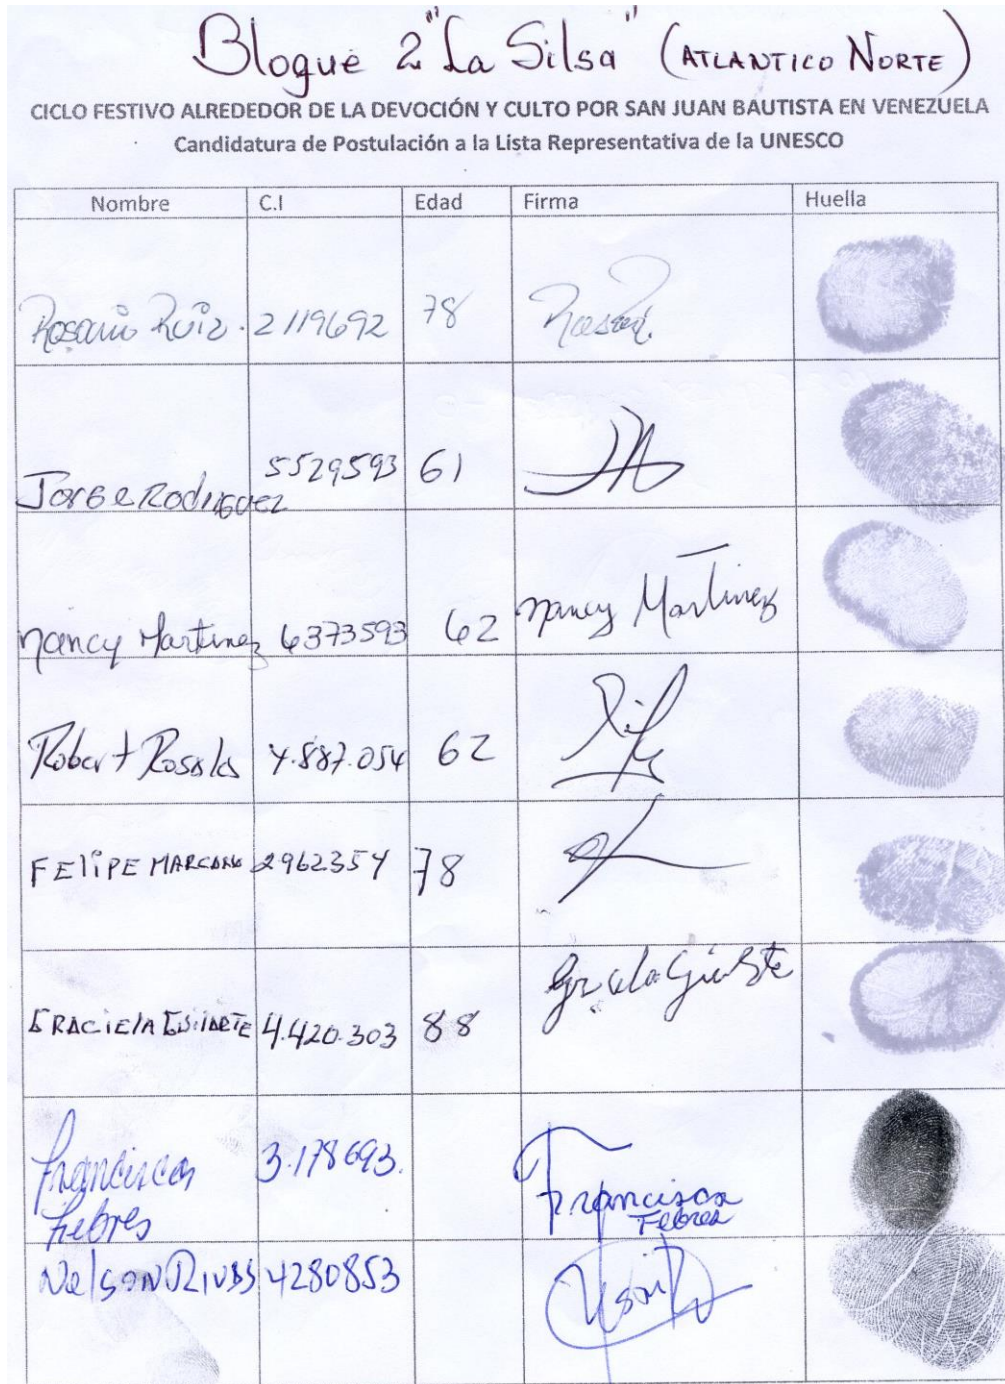 Bloque 2 "La Silsa" (ATLANTICO NORTE)
CICLO FESTIVO ALREDEDOR DE LA DEVOCIÓN Y CULTO POR SAN JUAN BAUTISTA EN VENEZUELA
Candidatura de Postulación a la Lista Representativa de la UNESCO
Nombre C.I Edad Firma Huella
Rosario Ruiz. 2119692 78
Jorge Rodriguez 5529593 61
Nancy Martinez 6373593 62 Nancy Martinez
Robert Rosales 4.887.054 62
FELIPE MARCANO 2962354 78
GRACIELA 4.420.303 88
Francisca Febres 3.178693. Francisca Febres
Nelson RIVAS 4280853